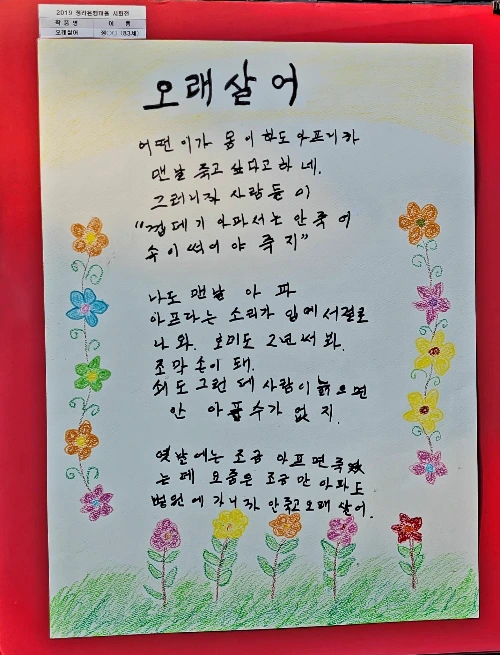 2019 청라온한마을 시화전
작 품 명 이 름
오래살어 원○○ (83세)
오래살어
어떤 이가 몽이 하도 아프니까
맨날 죽고 싶다고 하네.
그러니까 사람들이
"껍데기 아파서는 안죽어
속이 썩어야 죽지"
나도 맨날 아파
아프다는 소리가 입에서절로
나와. 호미도 2년써봐.
조막손이 돼.
쇠도 그런데 사람이 늙으면
안 아플수가 없지.
옛날에는 조금 아프면죽었
는데 요즘은 조금만 아파도
병원에 가니까 안죽고오래살어.